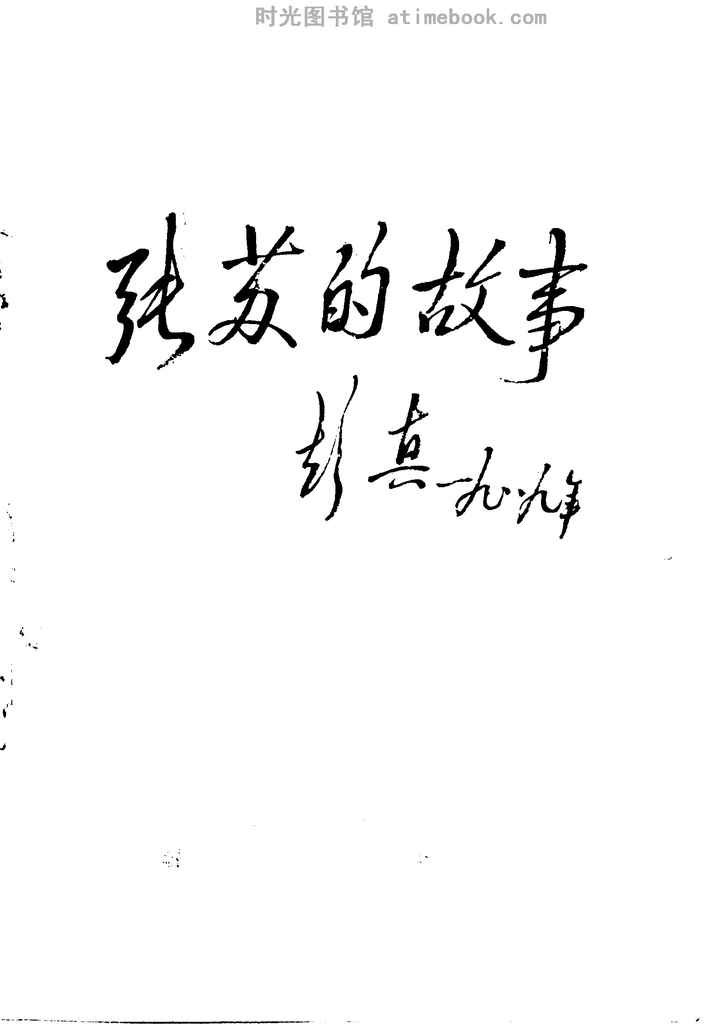 时光图书馆 atimebook.com
张苏的故事
彭真一九八九年